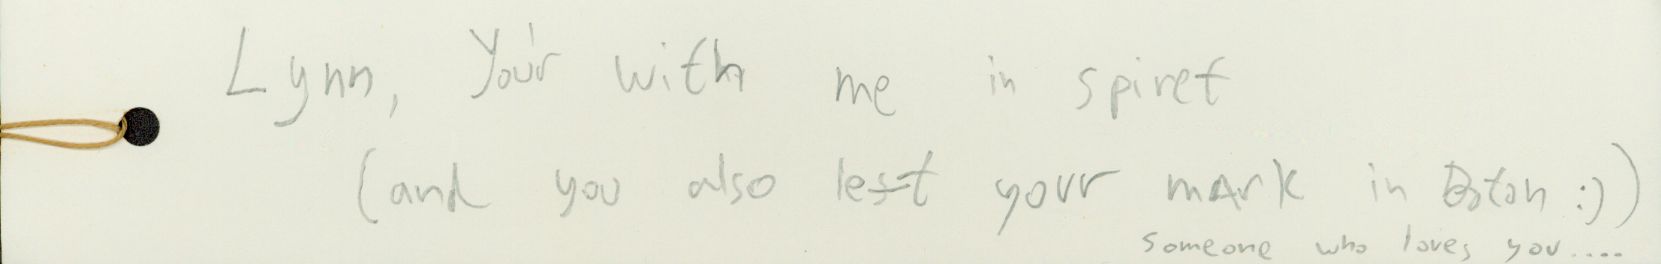 Lynn, You'r with me in spiret
(and you also left your mark in Boton :))
someone who loves you....